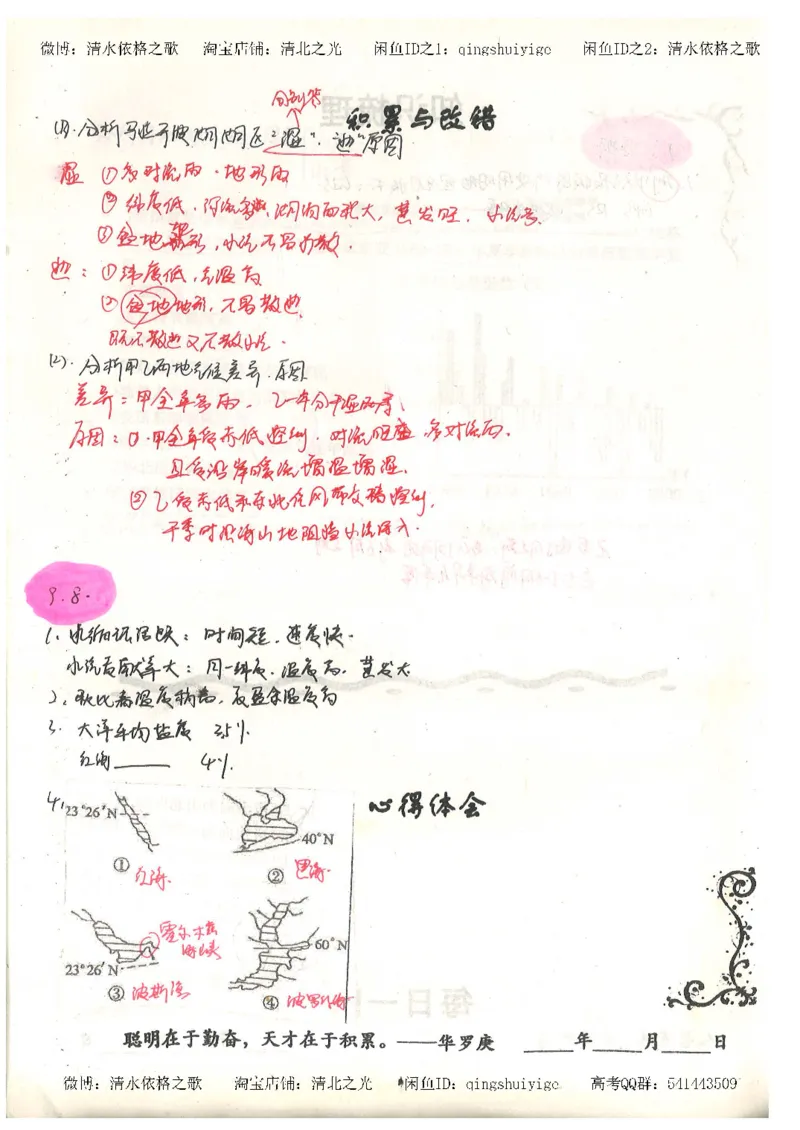 微博：清水依格之歌 淘宝店铺：清北之光 闲鱼ID之1：qingshuiyige 闲鱼ID之2：清水依格之歌
分别答
积累与改错
分析马拉开波湖湖区"湿"、"热"原因
湿 ①多对流雨·地形雨
②纬度低，河流多，湖泊面积大，蒸发旺，水汽多
③盆地地形，水汽不易扩散.
热：①纬度低，气温高
②盆地地形，不易散热
既不散热又不散水汽.
(2).分析甲乙两地气候差异.原因
差异：甲全年多雨，乙一年分干湿两季；
原因：①.甲全年受赤低控制.对流旺盛 多对流雨.
且受沿岸暖流增温增湿.
②乙受赤低和东北信风带交替控制，
干季时沿海山地阻挡水汽深入.
9.8.
1、水循环活跃：时间短，速度快.
水汽贡献率大：同一纬度.温度高，蒸发大
2、秋比春温度稍高，夏至余温度高
3. 大洋平均盐度 35‰
红海 4%.
4、 心得体会
23°26′N
40°N
① 红海. ② 黑海.
霍尔木兹
海峡
60°N
23°26′N
③ 波斯湾 ④ 波罗的海
聪明在于勤奋，天才在于积累。——华罗庚 年 月 日
微博：清水依格之歌 淘宝店铺：清北之光 闲鱼ID：qingshuiyige 高考QQ群：541443509